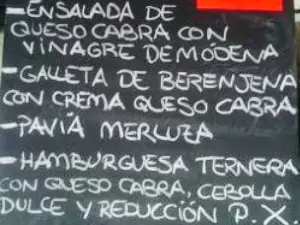 -ENSALADA DE
QUESO CABRA CON
VINAGRE DE MÓDENA
-GALLETA DE BERENJENA
CON CREMA QUESO CABRA
-PAVÍA MERLUZA
-HAMBURGUESA TERNERA
CON QUESO CABRA, CEBOLLA
DULCE Y REDUCCIÓN P.X.